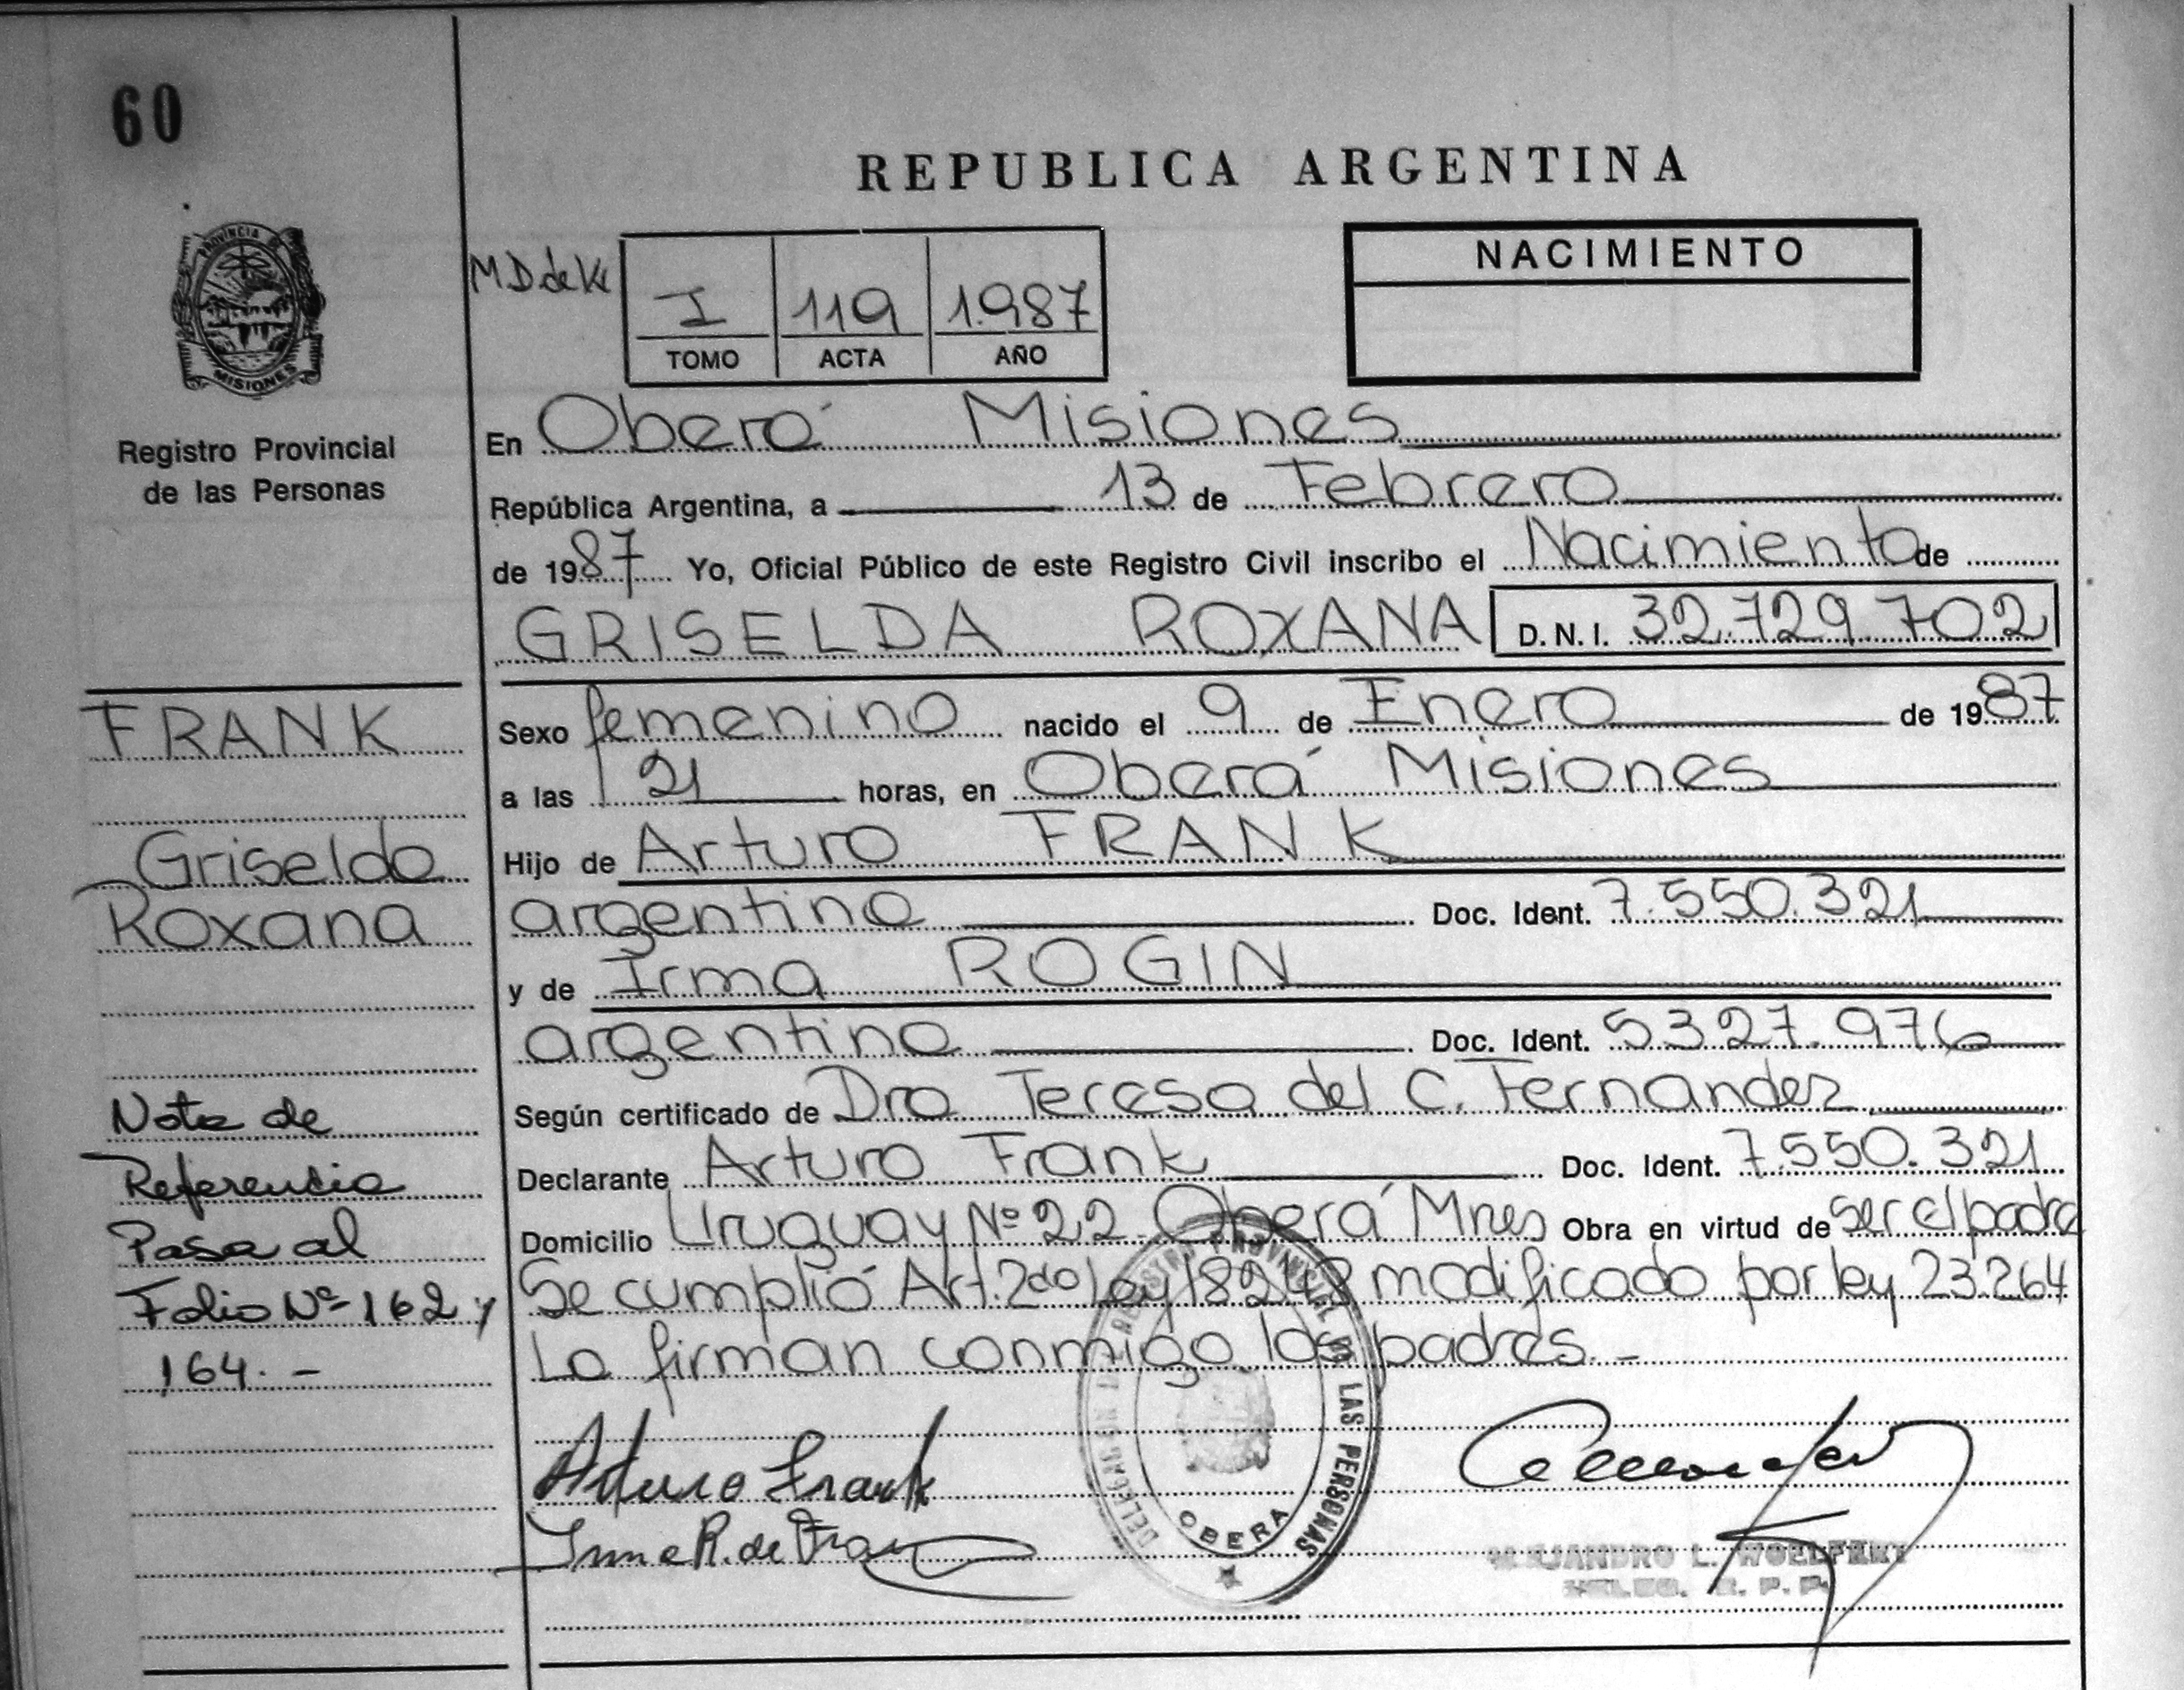 60
REPUBLICA ARGENTINA
PROVINCIA DE
MISIONES
Registro Provincial
de las Personas
M.D de K
I 119 1.987
TOMO ACTA AÑO
NACIMIENTO
En Oberá Misiones
República Argentina, a 13 de Febrero
de 1987 Yo, Oficial Público de este Registro Civil inscribo el Nacimiento de
GRISELDA ROXANA D. N. I. 32.729.702
FRANK
Griselda
Roxana
Sexo femenino nacido el 9 de Enero de 1987
a las 21 horas, en Oberá Misiones
Hijo de Arturo FRANK
argentino Doc. Ident. 7.550.321
y de Irma ROGIN
argentina Doc. Ident. 5.327.976
Según certificado de Dra Teresa del C. Fernandez
Declarante Arturo Frank Doc. Ident. 7.550.321
Domicilio Uruguay Nº 22 Oberá Mnes Obra en virtud de ser el padre
Se cumplió Art. 2do Ley 18248 modificado por ley 23.264
La firman conmigo los padres.-
Nota de
Referencia
Pasa al
Folio Nº 162 y
164.-
Arturo Frank
Irma R. de Frank
DELEGACION DEL REGISTRO PROVINCIAL DE LAS PERSONAS
OBERA
ALEJANDRO L.
DELEG. R. P. P.